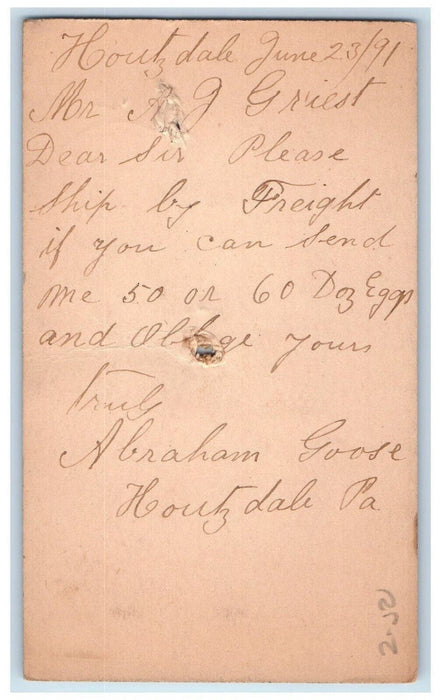 Houtzdale June 23/91
Mr A J Griest
Dear Sir Please
Ship by Freight
if you can Send
me 50 or 60 Doz Eggs
and Oblige yours
truly
Abraham Goose
Houtzdale Pa